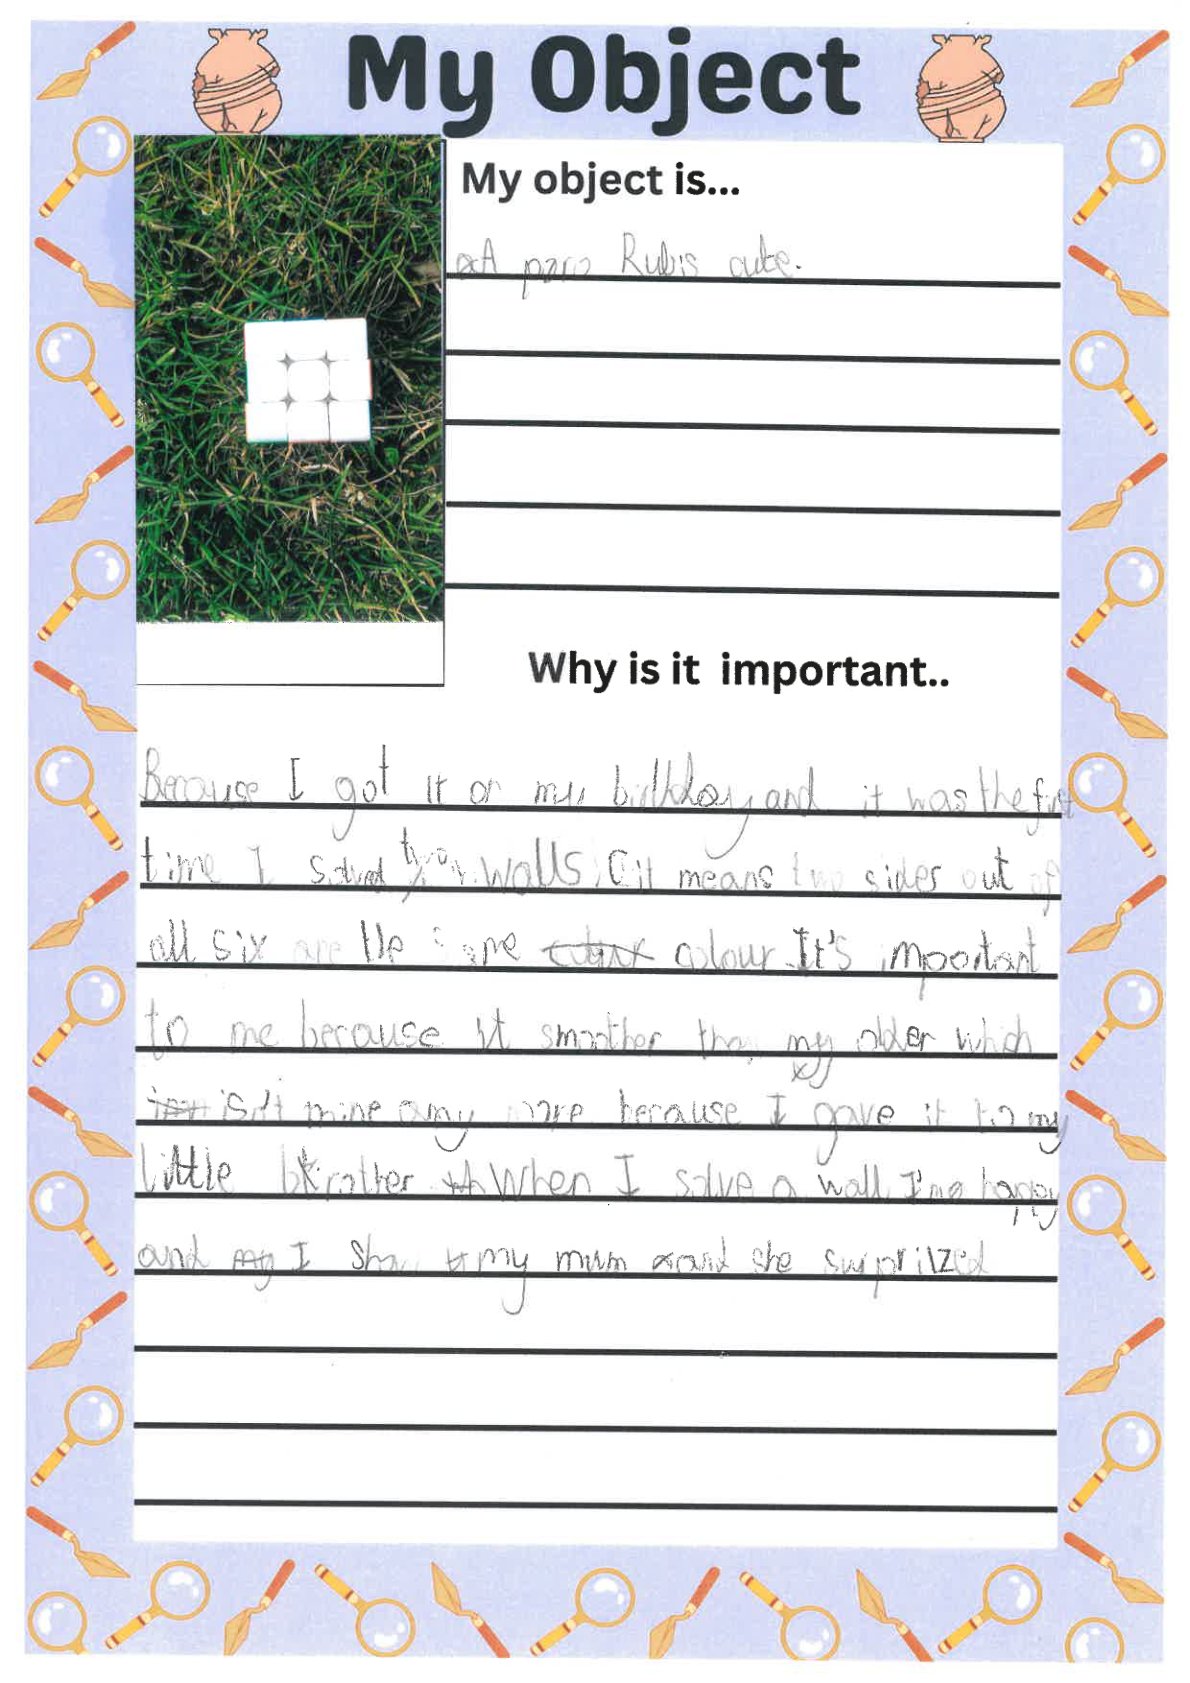 My Object
My object is...
A Rubis cube.
Why is it important..
Because I got it on my birthday and it was the first
time I solved two walls, it means two sides out of
all six are the same colour. It's impoortant
to me because it smoother than my older which
isn't mine any more because I gave it to my
little brother When I solve a wall I'me happy
and I show my mum and she surprilzed